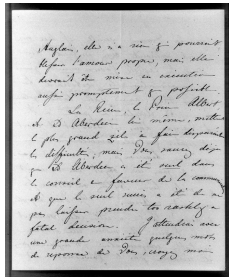 Anglais, elle n'a rien qui pourrait
blesser l'amour propre, mais elle
devrait être mise en exécution
aussi promptement que possible.
La Reine, le Prince Albert
et Ld Aberdeen lui même, mettent
le plus grand zèle à faire disparaître
les difficultés, mais Vous savez déjà
que Ld Aberdeen a été seul dans
le conseil en faveur de la
et que le seul succès a été de ne
pas laisser prendre
fatale décision. J'attendrai avec
une grande anxiété quelques mots
de réponse de Vous, croyez moi